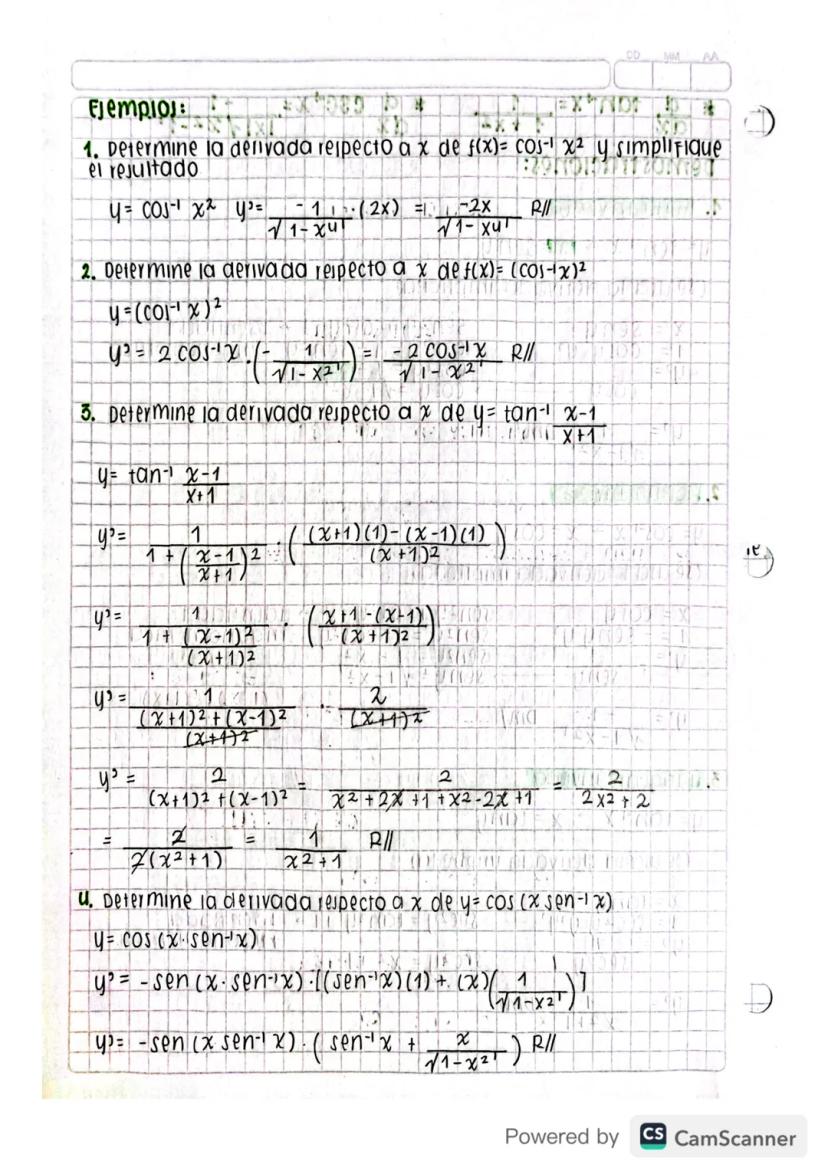 DD MM AA
Ejemplos:
1. Determine la derivada respecto a x de f(x)= cos⁻¹ x² y simplifique
el resultado
y= cos⁻¹ x² y'= -1/√(1-x⁴) · (2x) = -2x/√(1-x⁴) R//
2. Determine la derivada respecto a x de f(x)= (cos⁻¹x)²
y=(cos⁻¹ x)²
y'= 2 cos⁻¹x · (- 1/√(1-x²)) = -2 cos⁻¹x/√(1-x²) R//
3. Determine la derivada respecto a x de y= tan⁻¹ (x-1)/(x+1)
y= tan⁻¹ (x-1)/(x+1)
y'= 1/(1+((x-1)/(x+1))²) · (((x+1)(1)-(x-1)(1))/(x+1)²)
y'= 1/(1+(x-1)²/(x+1)²) · ((x+1-(x-1))/(x+1)²)
y'= 1/(((x+1)²+(x-1)²)/(x+1)²) · 2/(x+1)²
y'= 2/((x+1)²+(x-1)²) = 2/(x²+2x+1+x²-2x+1) = 2/(2x²+2)
= 2/(2(x²+1)) = 1/(x²+1) R//
4. Determine la derivada respecto a x de y= cos (x sen⁻¹x)
y= cos (x·sen⁻¹x)
y'= -sen (x·sen⁻¹x)·[(sen⁻¹x)(1) + (x)(1/√(1-x²))]
y'= -sen (x sen⁻¹ x) · (sen⁻¹x + x/√(1-x²)) R//
Powered by CS CamScanner